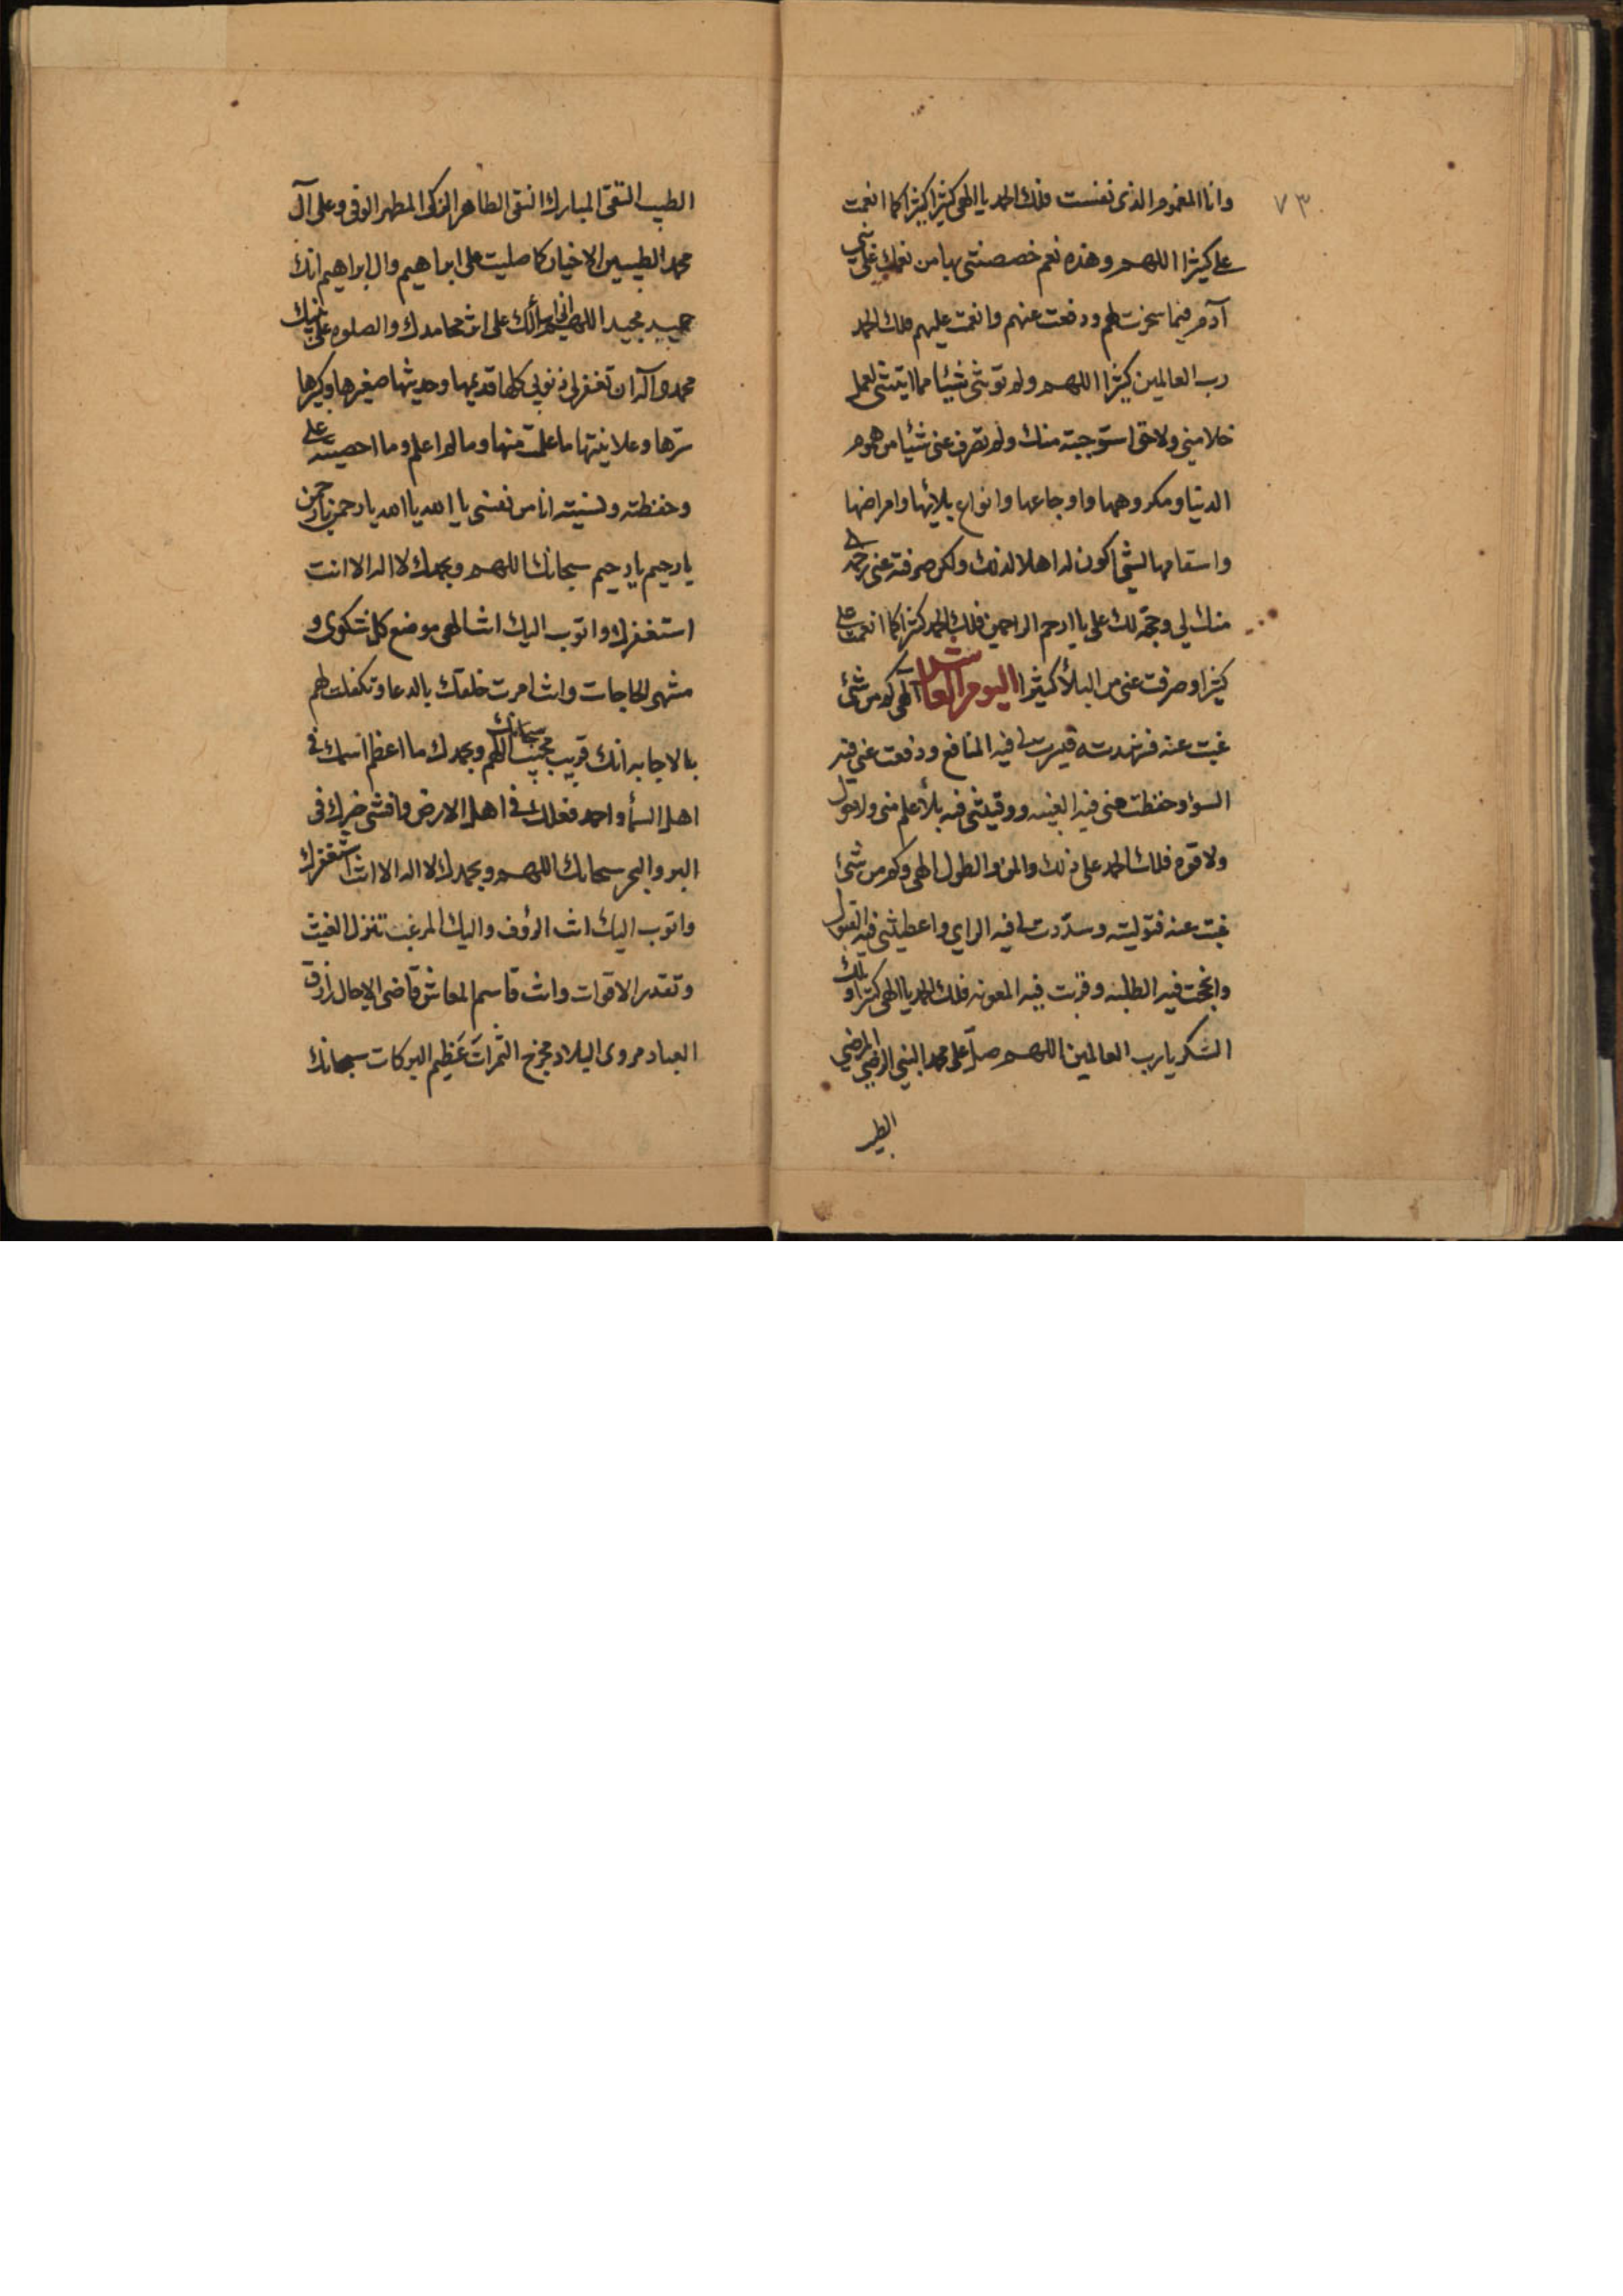 ٧٣
وانا المغموم الذى نفست فلك الحمد يا الهى كثيرا كثيرا كما انعمت
على كثيرا اللهم وهذه نعم خصصتنى بها من نعمك على بنى
آدم فيما سخرت لهم ودفعت عنهم وانعمت عليهم فلك الحمد
رب العالمين كثيرا اللهم ولم تؤتنى شيئا مما اتيتنى لعمل
خلا منى ولا حق استوجبته منك ولم تصرف عنى شيئا من هموم
الدنيا ومكروهها واوجاعها وانواع بلائها وامراضها
واسقامها لشئ اكون له اهلا لذلك ولكن صرفته عنى رحمة
منك لى وحجة لك على يا ارحم الراحمين فلك الحمد كثيرا كما انعمت على
كثيرا وصرفت عنى من البلاء كثيرا اليوم العاشر الهى كم من شئ
غبت عنه فشهدته فيسرت لى فيه المنافع ودفعت عنى فيه
السوء وحفظت منى فيه الغيبه ووقيتنى فيه بلا علم منى ولا حول
ولا قوه فلك الحمد على ذلك والمن والطول الهى وكم من شئ
غبت عنه فتوليته وسددت لى فيه الراى واعطيتنى فيه القبول
وانجحت فيه الطلبه وقربت فيه المعونه فلك الحمد يا الهى كثيرا ولك
الشكر يا رب العالمين اللهم صل على محمد النبى الرضى المرضى
الطيب
الطيب التقى المبارك النقى الطاهر الزكى المطهر الوفى وعلى آل
محمد الطيبين الاخيار كما صليت على ابراهيم وال ابراهيم انك
حميد مجيد اللهم انى اسألك على اثر محامدك والصلوه على نبيك
محمد وآله ان تغفر لى ذنوبى كلها قديمها وحديثها صغيرها وكبيرها
سرها وعلانيتها ما علمت منها وما لم اعلم وما احصيته على
وحفظته ونسيته انا من نفسى يا الله يا الله يا رحمن يا رحمن
يا رحيم يا رحيم سبحانك اللهم وبحمدك لا اله الا انت
استغفرك واتوب اليك انت الهى موضع كل شكوى و
منتهى الحاجات وانت امرت خلقك بالدعا وتكفلت لهم
بالاجابه انك قريب مجيب سبحانك اللهم وبحمدك ما اعظم اسمك فى
اهل السماء واحمد فعلك فى اهل الارض وافشى خيرك فى
البر والبحر سبحانك اللهم وبحمدك لا اله الا انت استغفرك
واتوب اليك انت الرؤف واليك المرغب تنزل الغيث
وتقدر الاقوات وانت قاسم المعاش قاضى الاجال رازق
العباد مروى البلاد مخرج الثمرات عظيم البركات سبحانك